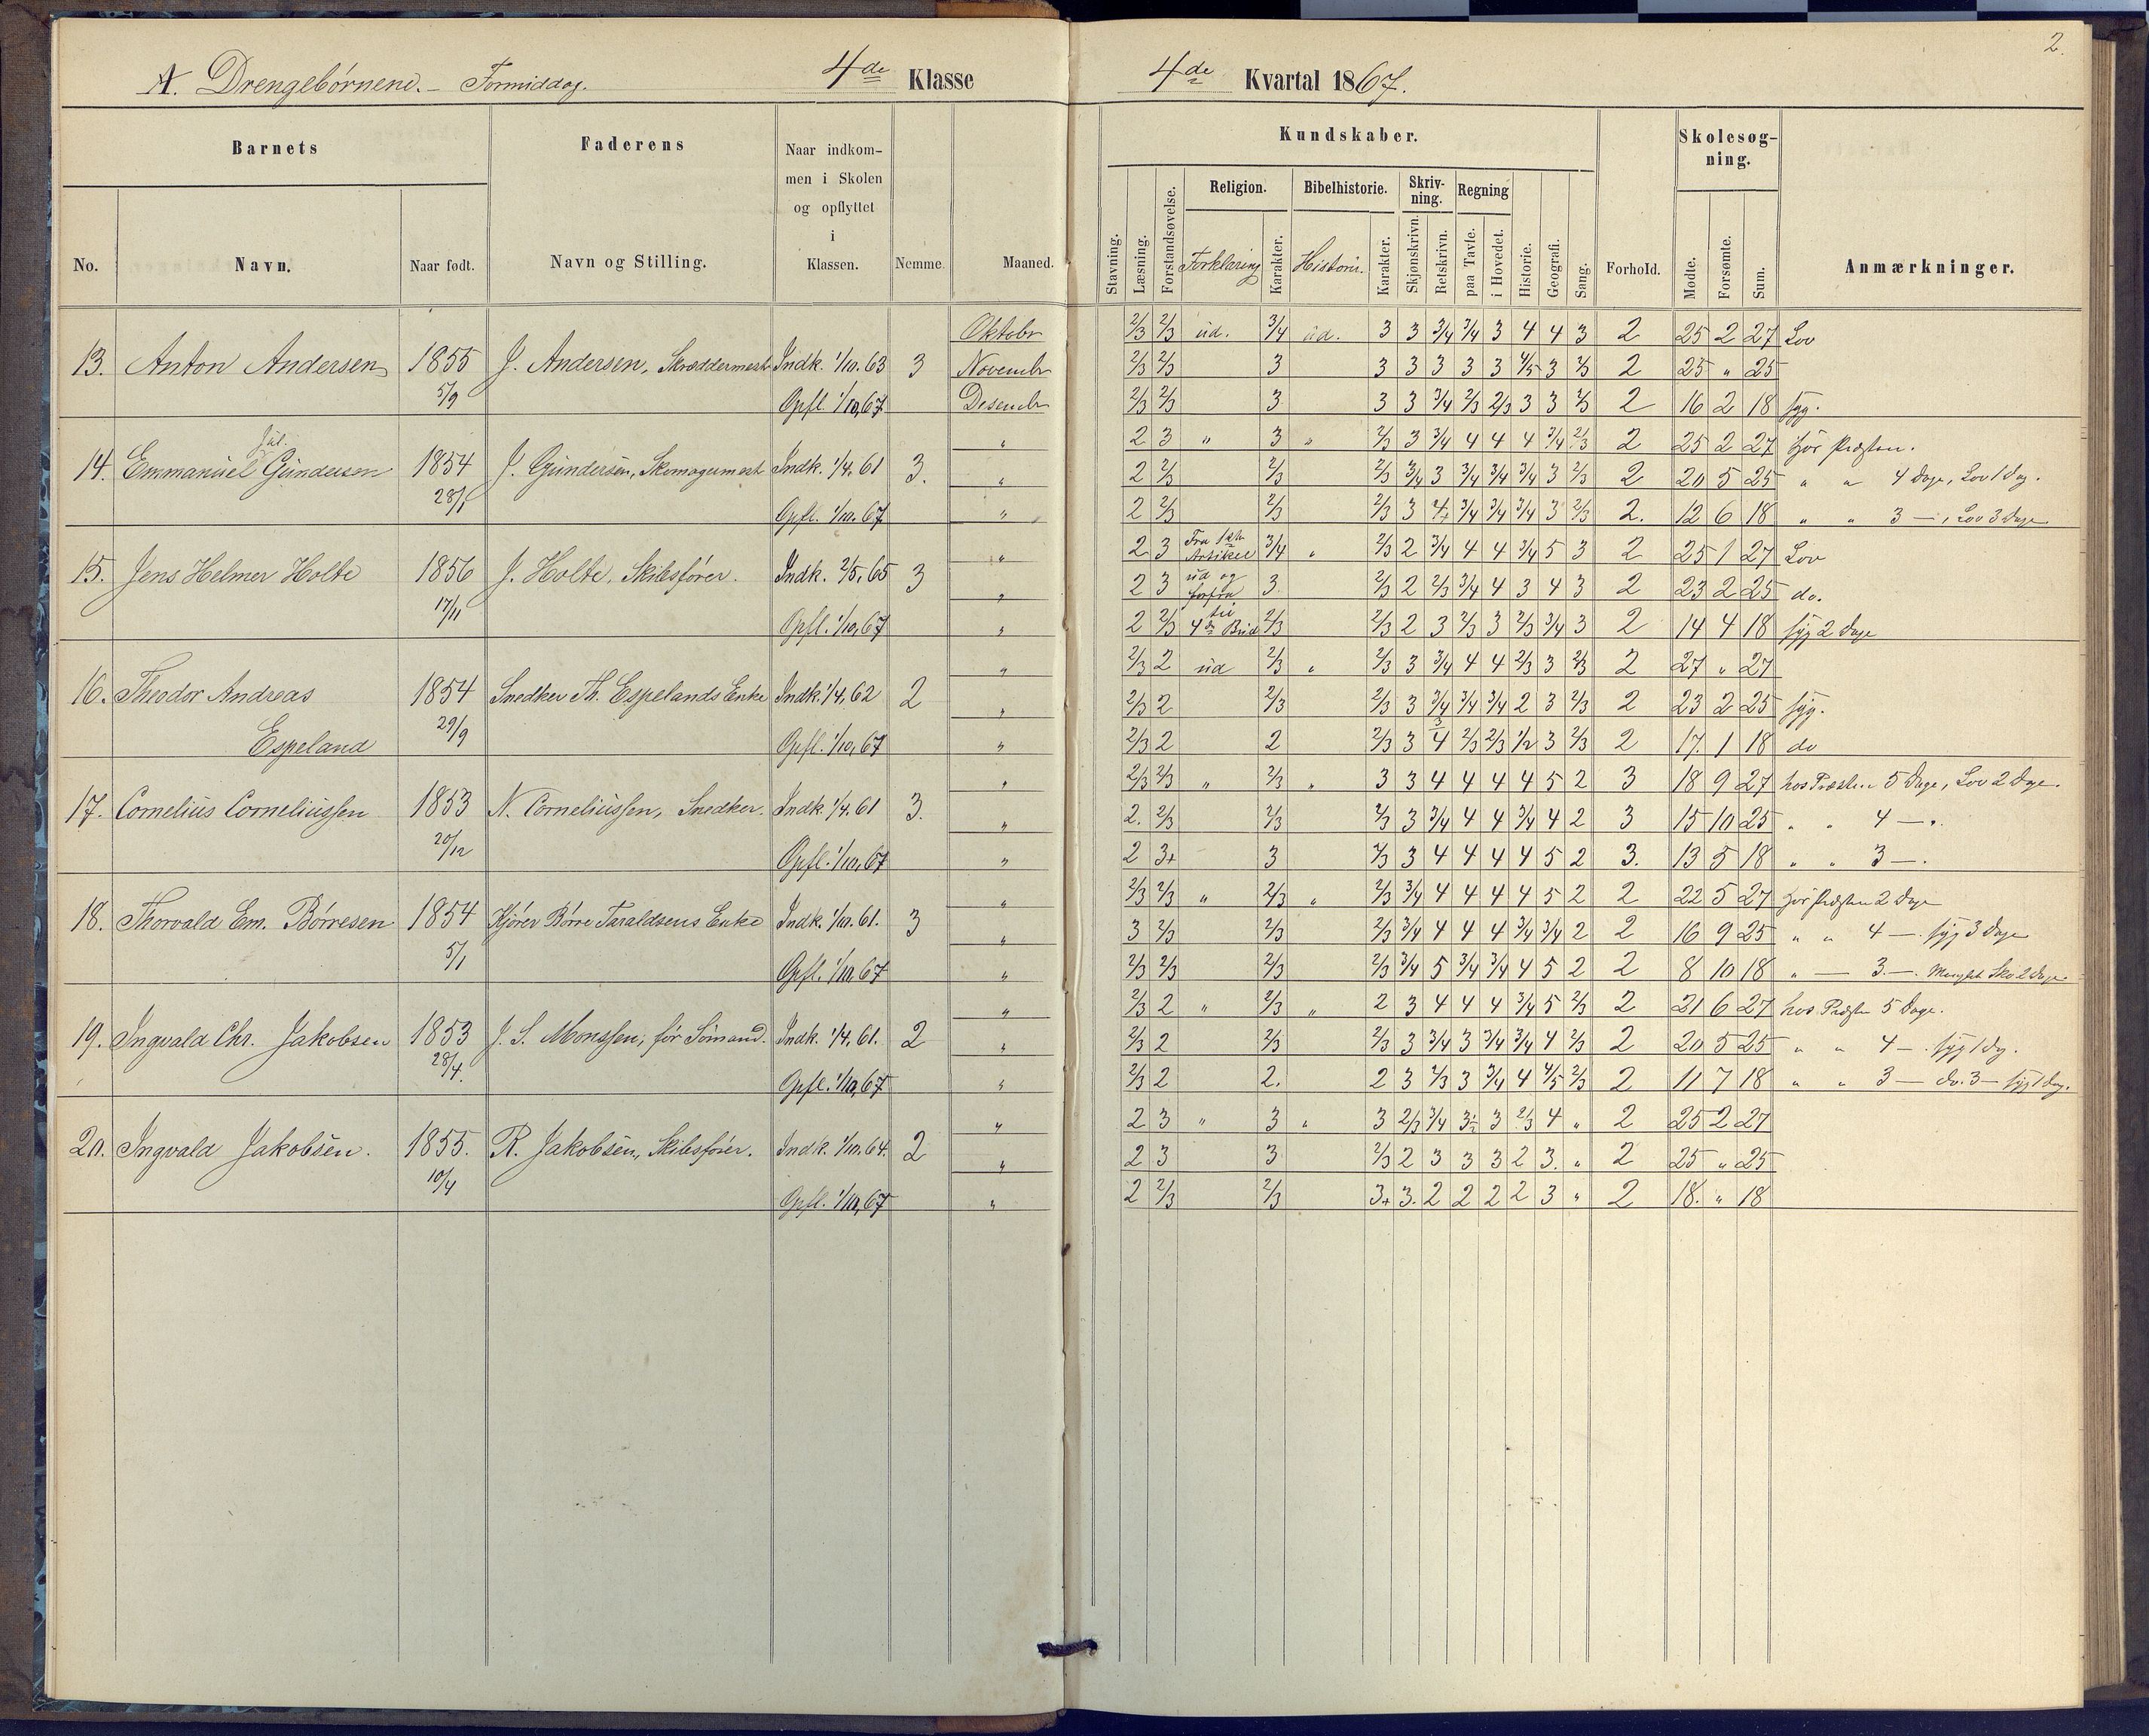 2.
A. Drengebørnene. – Formiddag. 4de Klasse
4de Kvartal 1867.
Barnets
No. Navn. Naar født.
Faderens
Navn og Stilling.
Naar indkom-
men i Skolen
og opflyttet
i
Klassen.
Nemme.
Maaned.
Kundskaber.
Stavning.
Læsning.
Forstandsøvelse.
Religion.
Forklaring
Karakter.
Bibelhistorie.
Historie.
Karakter.
Skriv-
ning.
Skjønskrivn.
Retskrivn.
Regning
paa Tavle.
i Hovedet.
Historie.
Geografi.
Sang.
Forhold.
Skolesøg-
ning.
Mødte.
Forsømte.
Sum.
Anmærkninger.
Oktobr 2/3 2/3 ud. 3/4 ud. 3 3 3/4 3/4 3 4 4 3 2 25 2 27 Lov
13. Anton Andersen 1855 J. Andersen, Skræddermest Indk. 1/10. 63 3 Novembr 2/3 2/3 3 3 3 3 3 3 4/5 3 2/3 2 25 " 25
5/9 Opfl. 1/10, 67 Desembr 2/3 2/3 3 3 3 3/4 2/3 2/3 3 3 2/3 2 16 2 18 syg.
Jul.
" 2 3 " 3 " 2/3 3 3/4 4 4 4 3/4 2/3 2 25 2 27 hos Præsten.
14. Emmanuel Gundersen 1854 J. Gundersen, Skomagermest Indk. 1/4. 61 3. " 2 2/3 2/3 2/3 3/4 3 3/4 3/4 3/4 3 2/3 2 20 5 25 " " 4 Dage, Lov 1 Dag.
28/1 Opfl. 1/10. 67 " 2 2/3 2/3 2/3 3 3/4 3/4 3/4 3 2/3 2. 12 6 18 " " 3 –, Lov 3 Dage
" 2 3 Fra 1ste Artikel 3/4 " 2/3 2 3/4 4 4 3/4 5 3 2 25 1 27 Lov
15. Jens Helmer Holte 1856 J. Holte, Skibsfører. Indk. 2/5. 65 3 " 2 3 ud og forfra 3. 2/3 2 2/3 3/4 4 3 4 3 2 23 2 25 do.
17/11 Opfl. 1/10, 67 " 2 2/3 til 4de Bud 2/3 2/3 2 3 2/3 3 2/3 3/4 3 2 14 4 18 syg 2 Dage
" 2/3 2 ud 2/3 " 2/3 3 3/4 4 4 2/3 3 2/3 2 27 " 27
16. Theodor Andreas 1854 Snedker Th. Espelands Enke Indk. 1/4, 62 2 " 2/3 2 2/3 2/3 3 3/4 3/4 3/4 2 3 2/3 2 23 2 25 syg.
Espeland 29/9 Opfl. 1/10, 67 " 2/3 2 2 2/3 3 3/4 2/3 2/3 1/2 3 2/3 2 17. 1 18 do
" 2/3 2/3 " 2/3 " 3 3 4 4 4 4 5 2 3 18 9 27 hos Præsten 5 Dage, Lov 2 Dage.
17. Cornelius Corneliussen 1853 N. Corneliussen, Snedker. Indk. 1/4. 61 3. " 2. 2/3 2/3 2/3 3 3/4 4 4 3/4 4 2 3 15 10 25 " " 4 – ".
20/12 Opfl. 1/10, 67 " 2 3+ 3 2/3 3 4 4 4 4 5 2 3. 13 5 18 " " 3 –.
" 2/3 2/3 " 2/3 " 2/3 3/4 4 4 4 4 5 2 2 22 5 27 hos Præsten 2 Dage
18. Thorvald Em. Børresen 1854 Kjører Børre Taraldsens Enke Indk. 1/10. 61. 3 " 3 2/3 2/3 2/3 3/4 4 4 4 3/4 3/4 2 2 16 9 25 " " 4 –. syg 3 Dage
5/1 Opfl. 1/10, 67 " 2/3 2/3 2/3 2/3 3/4 5 3/4 3/4 4 5 2 2 8 10 18 " – 3. –. Manglet Sko 2 Dage.
" 2/3 2 " 2/3 " 2 3 4 4 4 3/4 5 2/3 2 21 6 27 hos Præsten 5 Dage.
19. Ingvald Chr. Jakobsen 1853 J. S. Monssen, før Sømand. Indk. 1/4. 61. 2 " 2/3 2 2/3 2/3 3 3/4 3 3/4 3/4 4 2/3 2 20 5 25 " " 4 –. syg 1 Dag.
28/4. Opfl. 1/10, 67 " 2/3 2 2. 2 3 2/3 3 3/4 4 4/5 2/3 2 11 7 18 " " 3 – do. 3 – syg 1 Dag.
" 2 3 " 3 " 3 2/3 3/4 3 2/3 4 " 2 25 2 27
20. Ingvald Jakobsen. 1855. R. Jakobsen, Skibsfører. Indk. 1/10. 64. 2 " 2 3 3 2/3 2 3 3 3 2 3. " 2 25 " 25
10/4 Opfl. 1/10, 67 " 2 2/3 2/3 3+ 3. 2 2 2 2 3 " 2 18. " 18